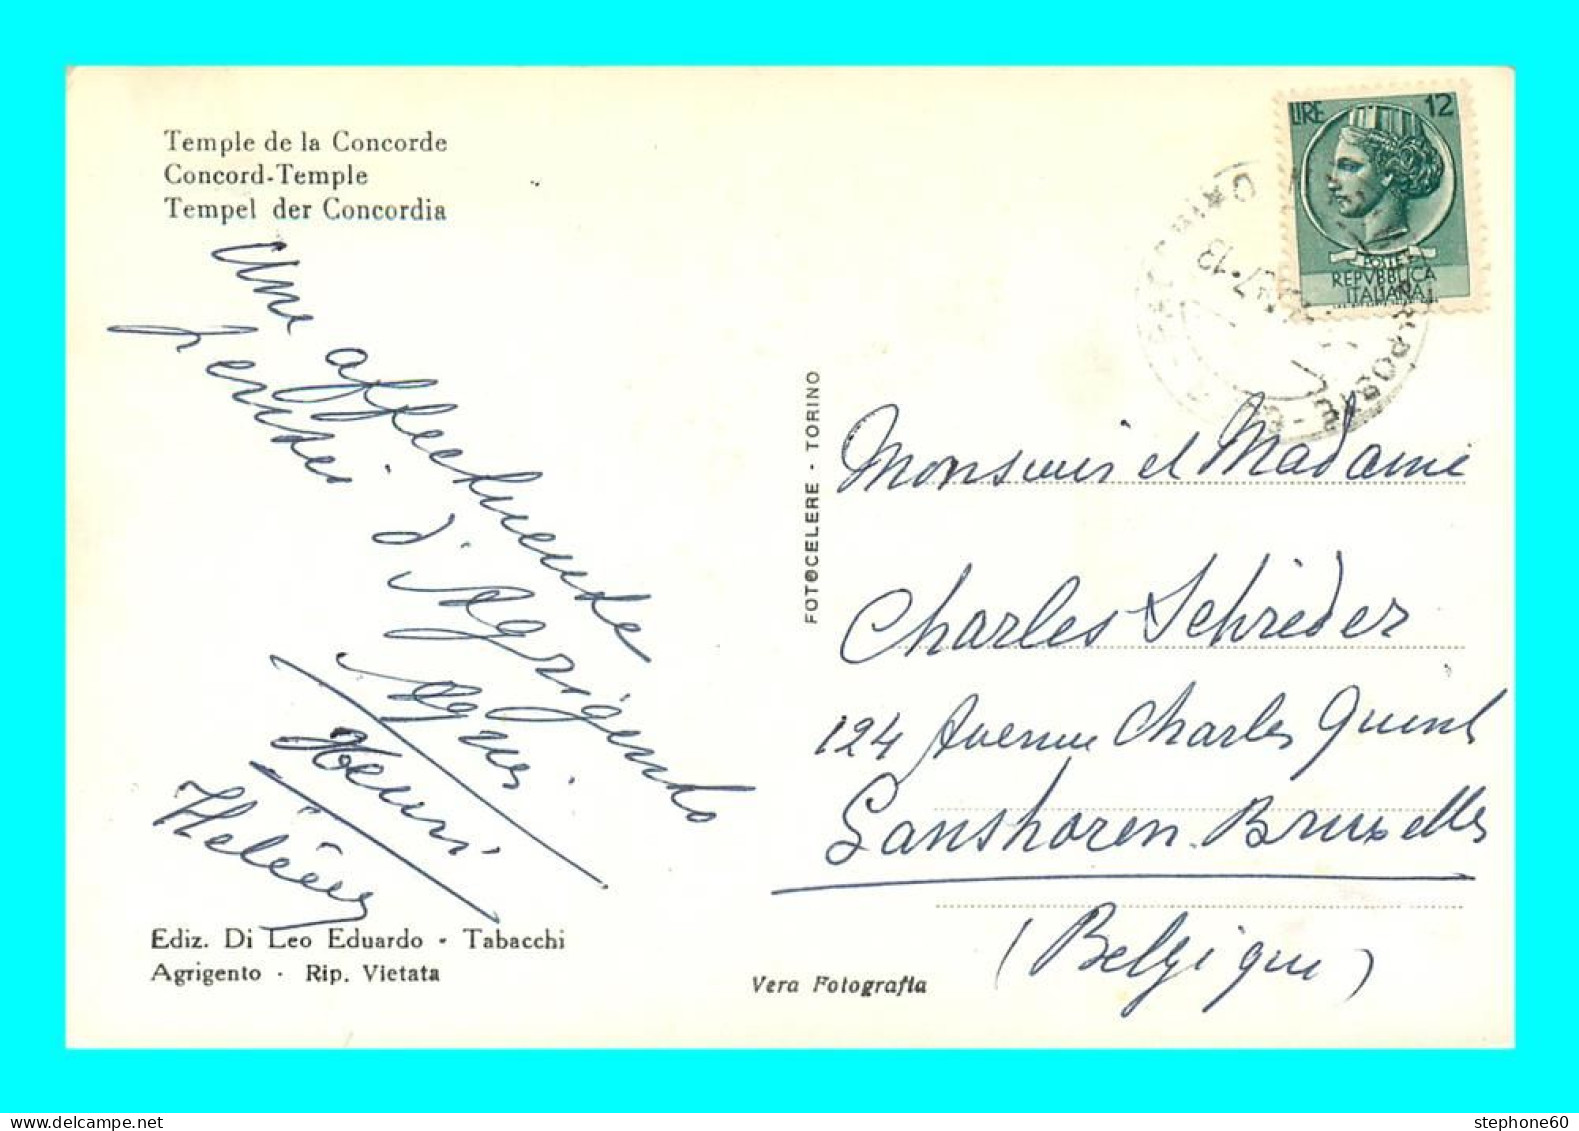 Temple de la Concorde
Concord-Temple
Tempel der Concordia
Une affectueuse
pensée
d'Agrigento
Henri
Hélène
Ediz. Di Leo Eduardo - Tabacchi
Agrigento - Rip. Vietata
Vera Fotografia
FOTOCELERE - TORINO
LIRE 12
POSTE
REPVBBLICA
ITALIANA
Monsieur et Madame
Charles Schrèder
124 Avenue Charles Quint
Ganshoren. Bruxelles
(Belgique)
stephone60